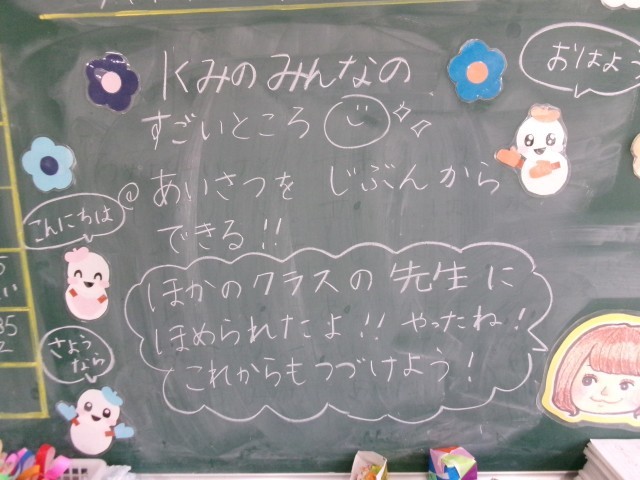 1くみの みんなの
すごいところ
おはよう
@ あいさつを じぶんから
できる!!
こんにちは
ほかのクラスの先生に
ほめられたよ!! やったね!
これからもつづけよう!
さよう
なら